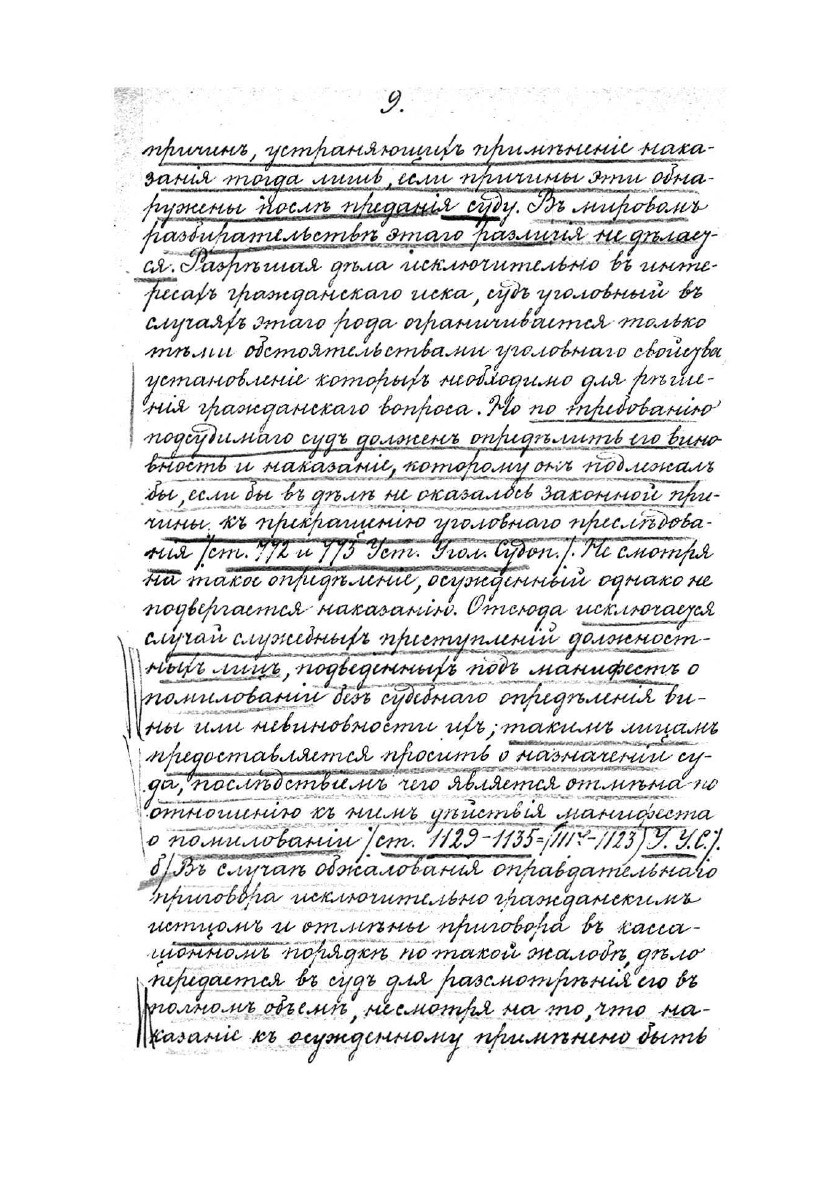 9.
причинъ, устраняющихъ примѣненіе нака-
занія тогда лишь, если причины эти обна-
ружены послѣ преданія суду. Въ мировомъ
разбирательствѣ этаго различія не дѣлает-
ся. Разрѣшая дѣла исключительно въ инте-
ресахъ гражданскаго иска, судъ уголовный въ
случаяхъ этаго рода ограничивается только
тѣми обстоятельствами уголовнаго свойства
установленіе которыхъ необходимо для рѣше-
нія гражданскаго вопроса. Но по требованію
подсудимаго судъ долженъ опредѣлить его вино-
вность и наказаніе, которому онъ подлежалъ
бы, если бы въ дѣлѣ не оказалось законной при-
чины къ прекращенію уголовнаго преслѣдова-
нія /ст. 772 и 775 Уст. Угол. Судоп./. Не смотря
на такое опредѣленіе, осужденный однако не
подвергается наказанію. Отсюда исключается
случай служебныхъ преступленій должност-
ныхъ лицъ, подведенныхъ подъ манифестъ о
помилованіи безъ судебнаго опредѣленія ви-
ны или невиновности ихъ; такимъ лицамъ
предоставляется просить о назначеніи су-
да, послѣдствіемъ чего является отмѣна по
отношенію къ нимъ дѣйствія манифеста
о помилованіи /ст. 1129-1135= 1123) У. У. С./.
б/ Въ случаѣ обжалованія оправдательнаго
приговора исключительно гражданскимъ
истцомъ и отмѣны приговора въ касса-
ціонномъ порядкѣ по такой жалобѣ, дѣло
передается въ судъ для разсмотрѣнія его въ
полномъ объемѣ, несмотря на то, что на-
казаніе къ осужденному примѣнено быть